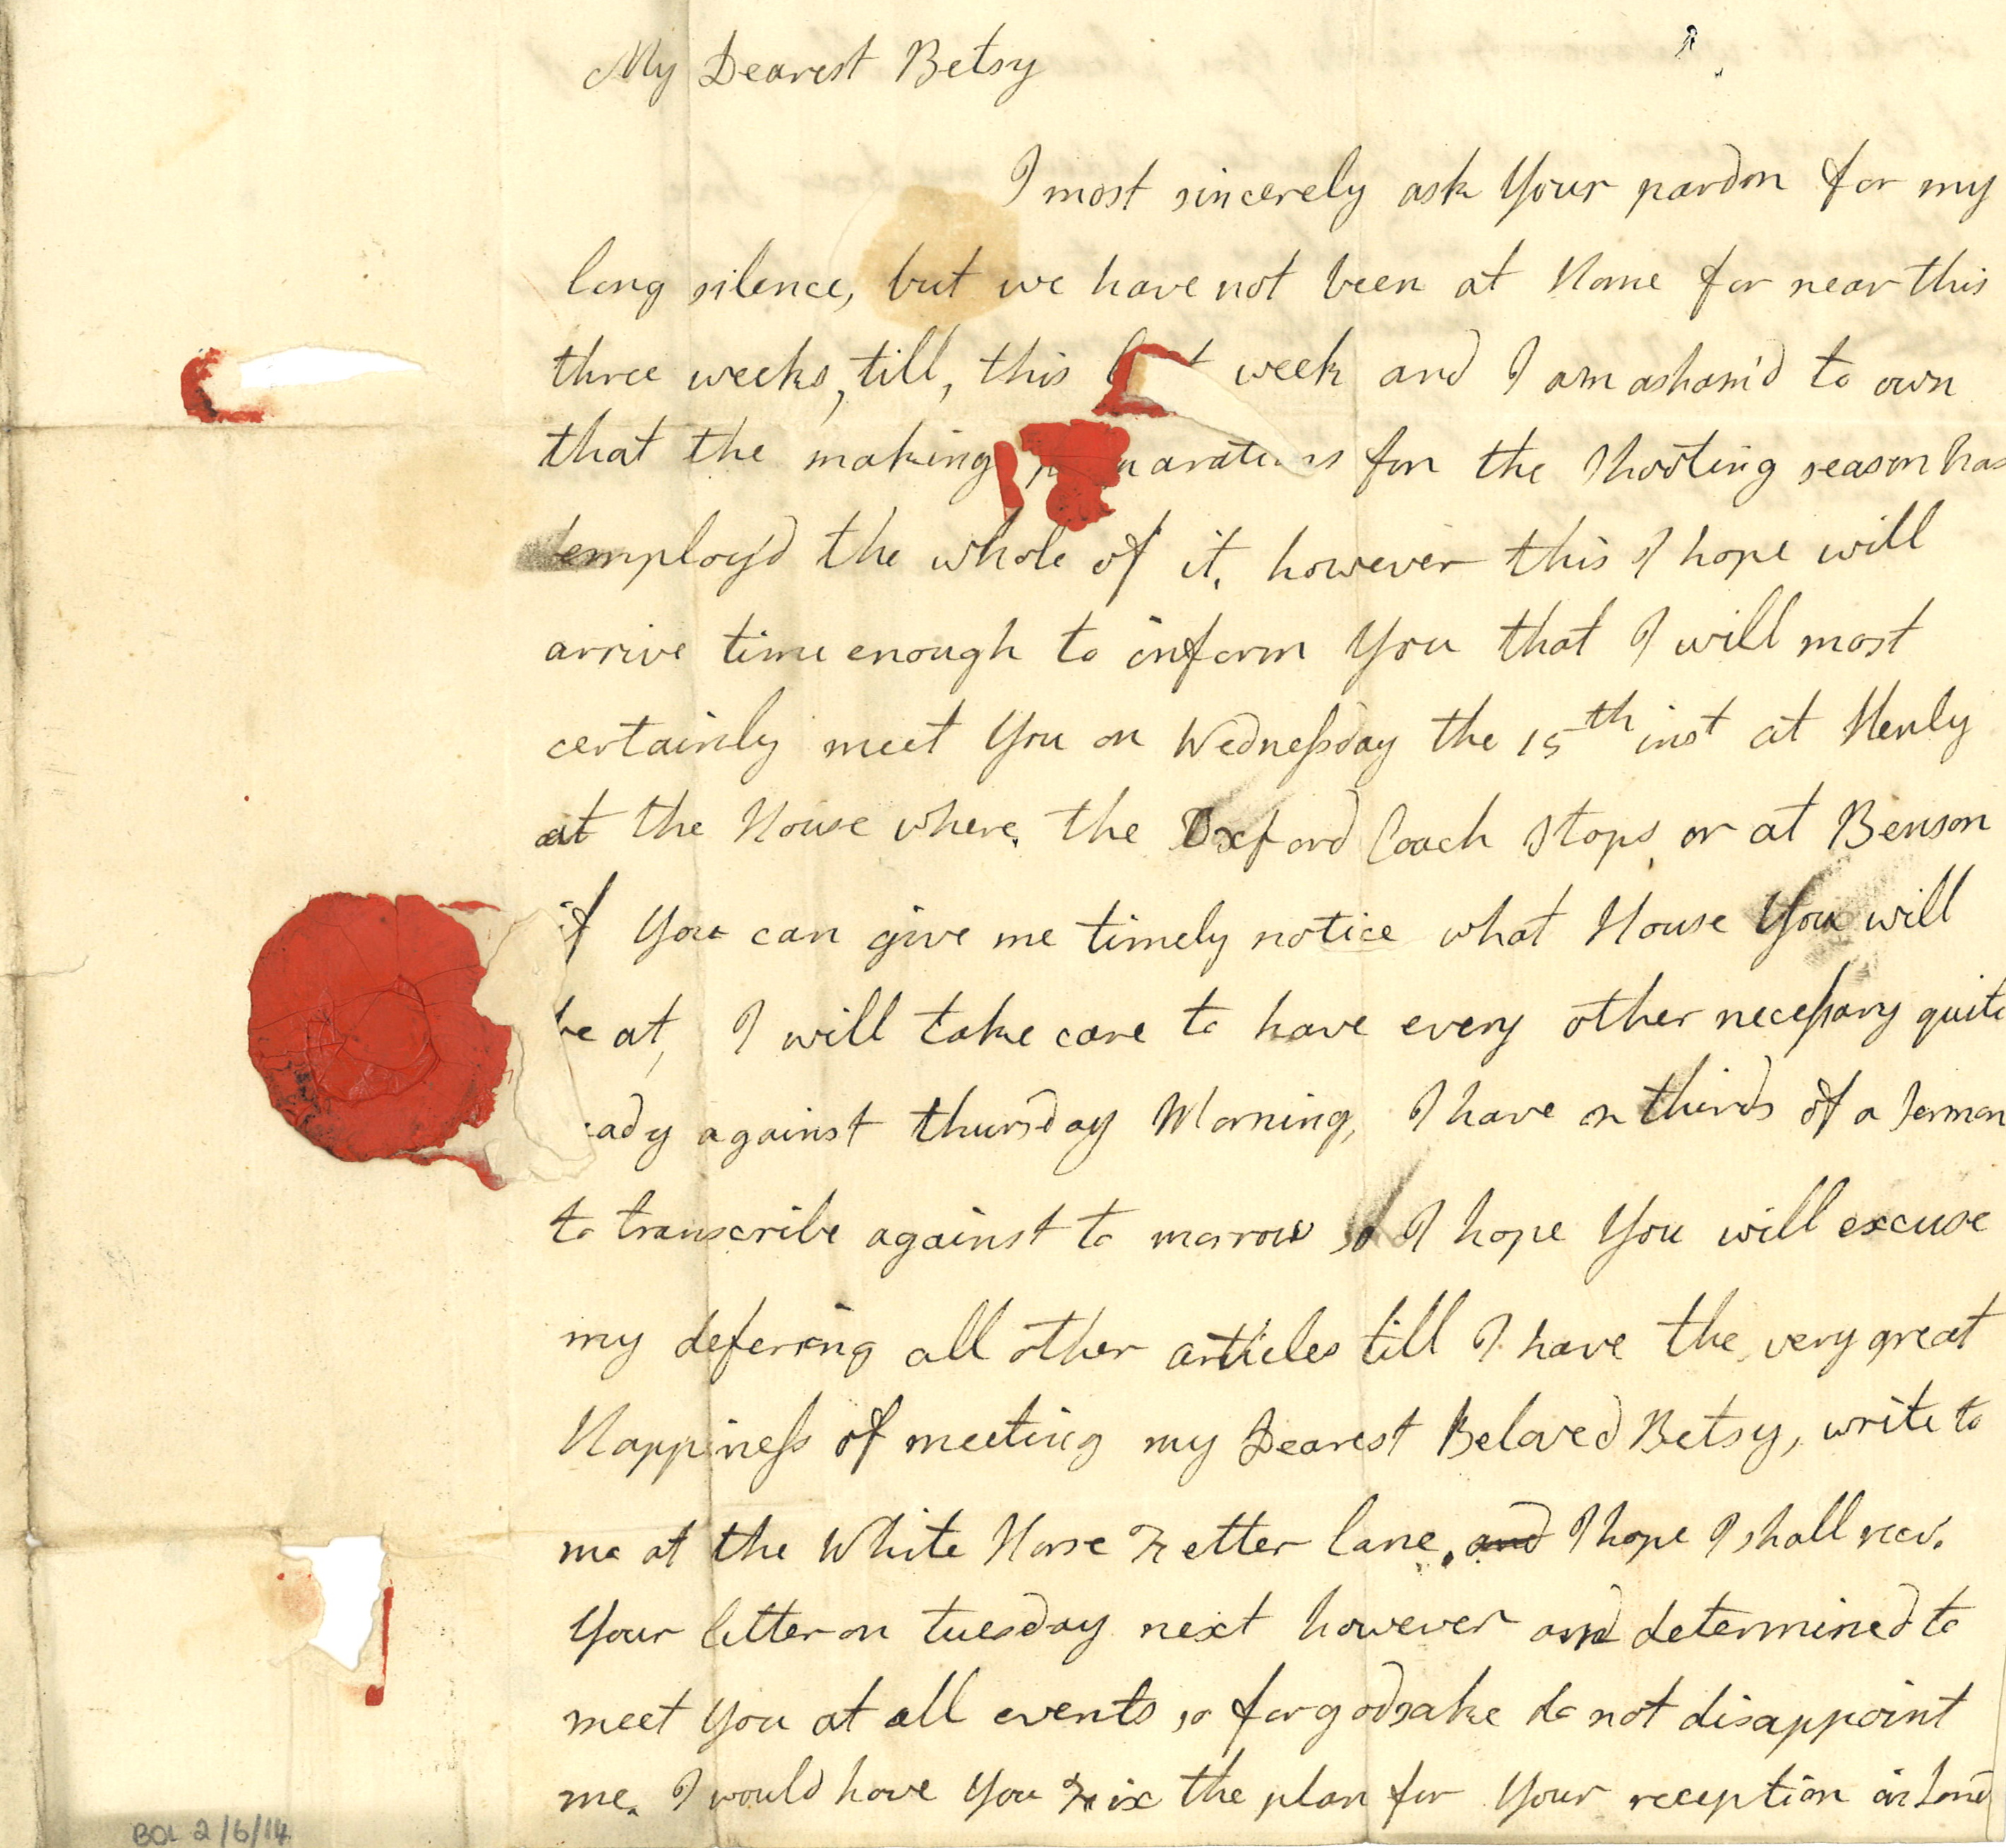 My Dearest Betsy
I most sincerely ask Your pardon for my
long silence, but we have not been at Home for near this
three weeks, till, this last week and I am asham'd to own
that the making preparations for the Shooting season has
employ'd the whole of it, however this I hope will
arrive time enough to inform You that I will most
certainly meet You on Wednesday the 15th inst at Henly
at the House where the Oxford Coach Stops, or at Benson
if You can give me timely notice what House You will
be at, I will take care to have every other necessary quite
eady against thursday Morning, I have thirds of a Sermon
to transcribe against to morrow so I hope You will excuse
my defering all other articles till I have the very great
Happiness of meeting my Dearest Beloved Betsy, write to
me at the White Horse Fetter lane, and I hope I shall recv.
Your letter on tuesday next however am determined to
meet You at all events so for godsake do not disappoint
me. I would have You Fix the plan for Your reception in Lond
BOL 2/6/14